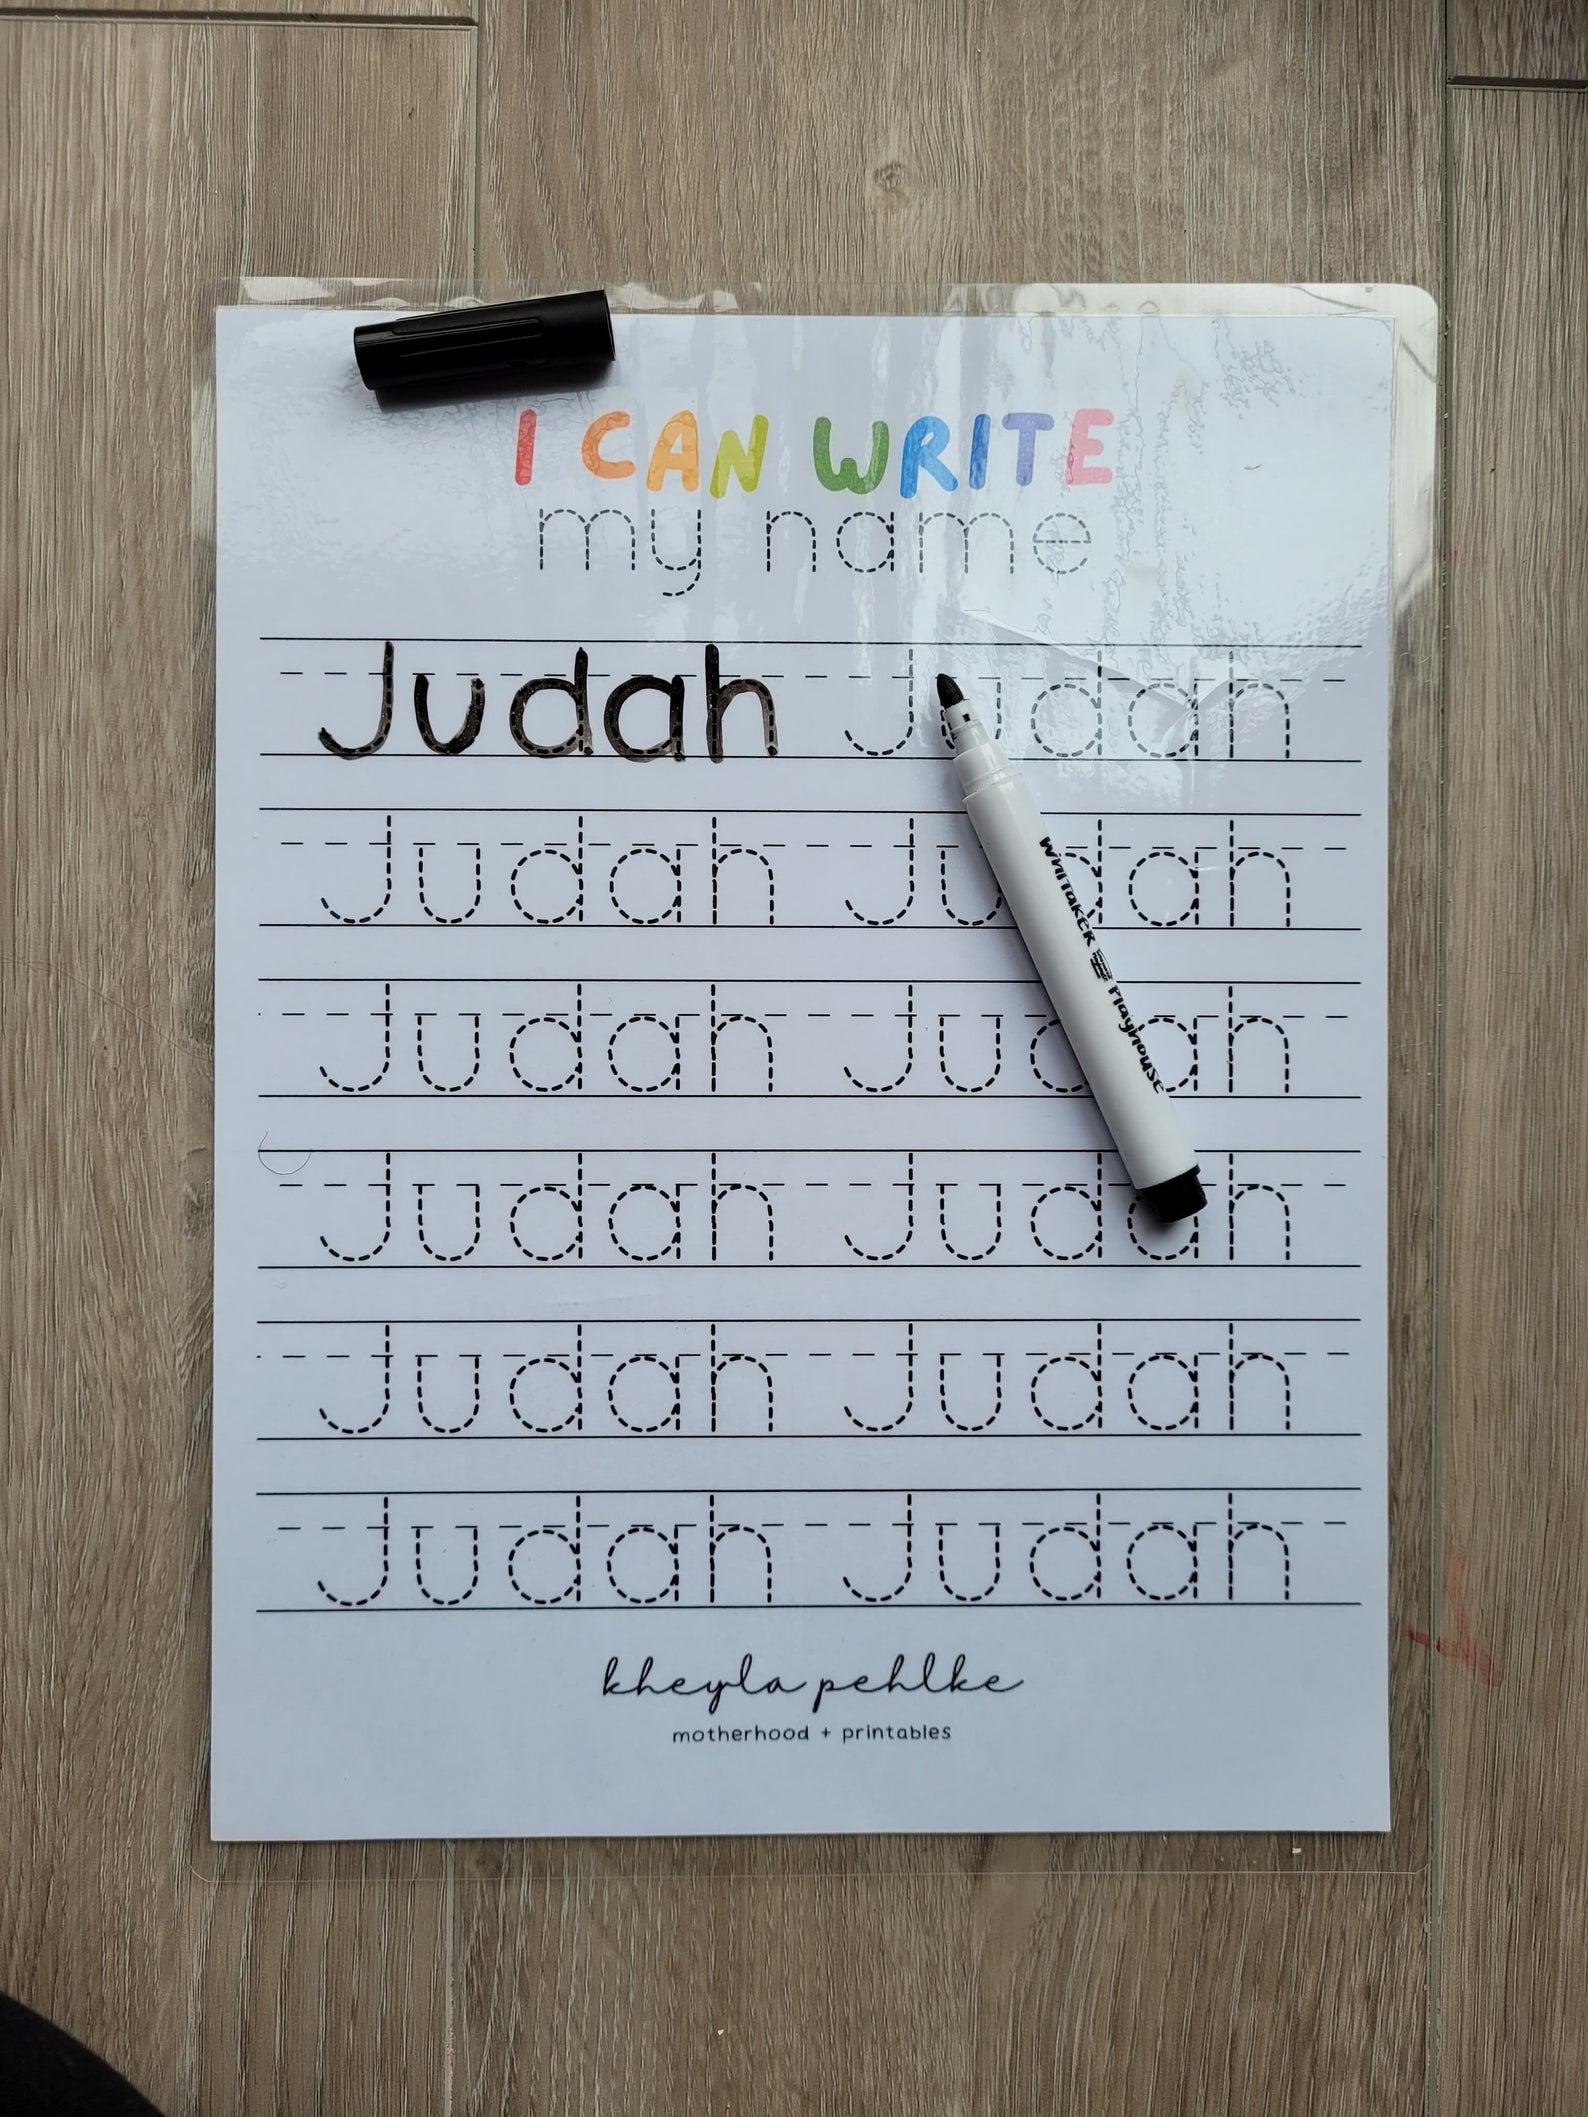 I CAN WRITE
my name
Judah Judah
Judah Judah
Judah Judah
Judah Judah
Judah Judah
Judah Judah
kheyla pehlke
motherhood + printables
WHITAKER Playhouse